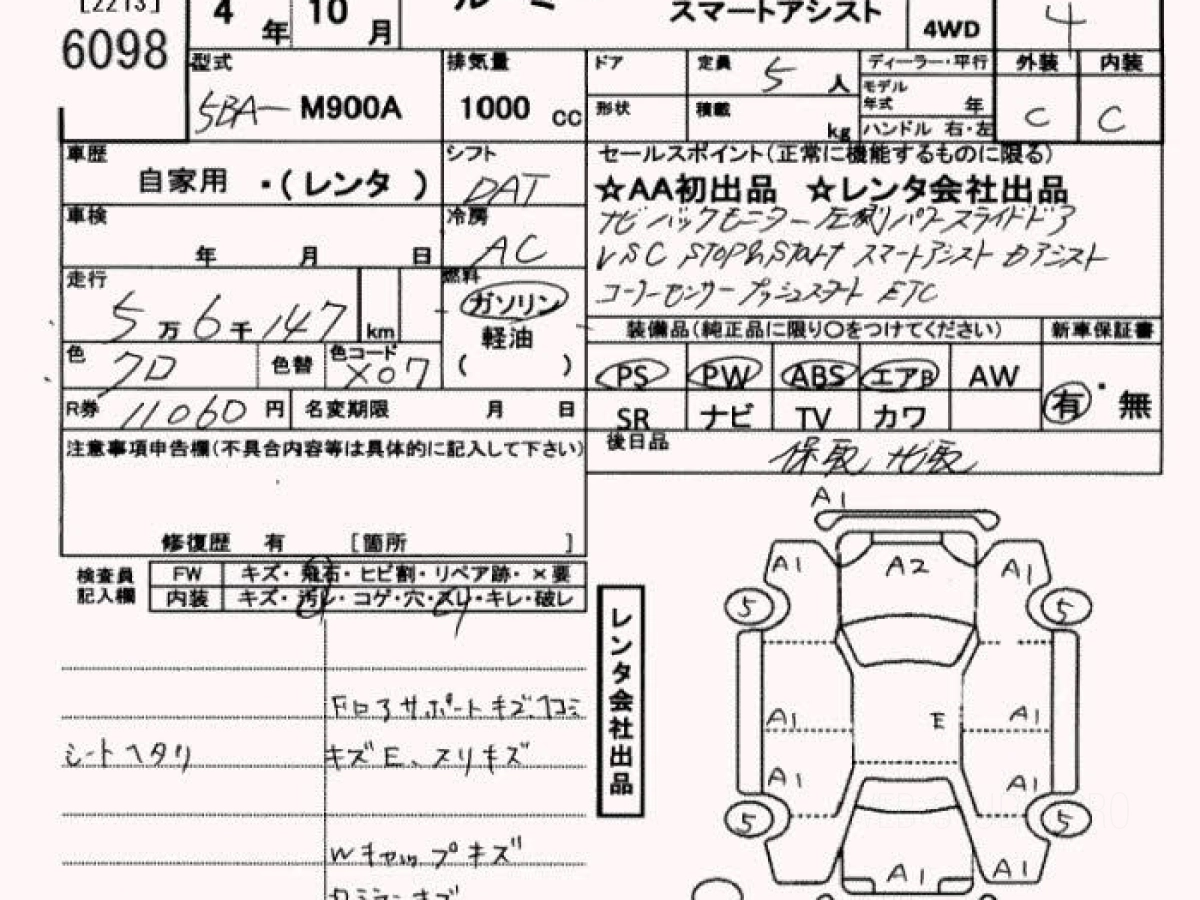 [2213]
6098
4年 10月
ルーミー
スマートアシスト
4WD
4
型式
5BA- M900A
排気量
1000 cc
ドア
定員 5人
ディーラー・平行
外装 内装
形状
積載 kg
モデル年式 年
ハンドル 右・左
C C
車歴
自家用 ・(レンタ )
シフト
DAT
セールスポイント(正常に機能するものに限る)
☆AA初出品 ☆レンタ会社出品
ナビ バックモニター 左側パワースライドドア
VSC STOP&START スマートアシスト
コーナーセンサー プッシュスタート ETC
車検
年 月 日
冷房
AC
走行
5万6千147 km
燃料
ガソリン
軽油
( )
色
色替
色コード
X07
装備品(純正品に限り○をつけてください) 新車保証書
PS PW ABS エアB AW
SR ナビ TV カワ
有・無
R券 11060円 名変期限 月 日
後日品
保取
注意事項申告欄(不具合内容等は具体的に記入して下さい)
修復歴 有 [箇所 ]
検査員記入欄
FW キズ・飛石・ヒビ割・リペア跡・×要
内装 キズ・汚レ・コゲ・穴・スレ・キレ・破レ
シートヘタリ
キズE、スリキズ
Wキャップキズ
レンタ会社出品
A1
A1 A2 A1
5 5
A1 E A1
A1 A1
5 5
A1 A1 A1